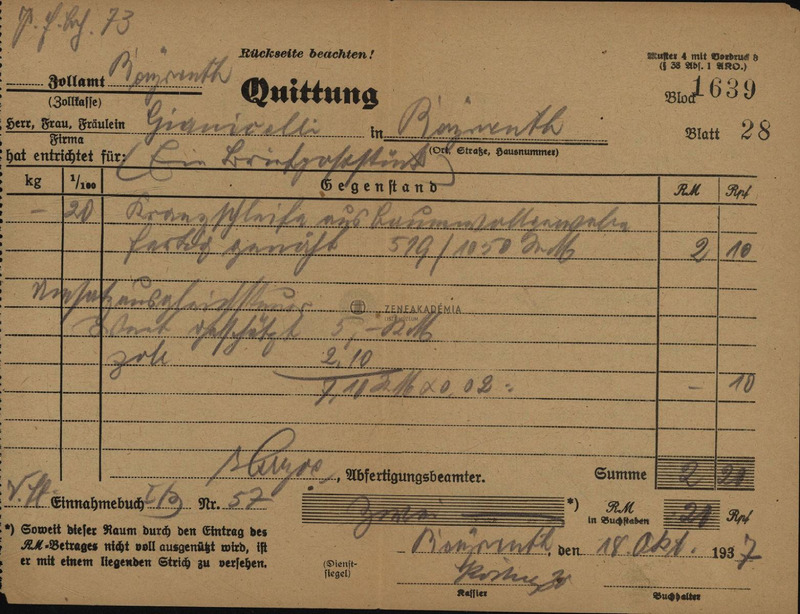 73
Rückseite beachten!
Muster 4 mit Vordruck 8
(§ 38 Abs. 1 AKO.)
Zollamt Bayreuth
(Zollkasse)
Quittung
Block 1639
Herr, Frau, Fräulein Gianicelli in Bayreuth
Firma
(Ort, Straße, Hausnummer)
Blatt 28
hat entrichtet für: (Ein Briefpoststück)
kg 1/100 Gegenstand RM Rpf
— 20 Kranzschleife aus Baumwollgewebe
fertig genäht 519/1050 RM 2 10
Umsatzausgleichsteuer
Wert geschätzt 5,— RM
Zoll 2,10
7,10 RM x 0,02 = — 10
ZENEAKADÉMIA
, Abfertigungsbeamter. Summe 2 20
Einnahmebuch Nr. 57
zwei — *) RM in Buchstaben 20 Rpf
*) Soweit dieser Raum durch den Eintrag des
RM-Betrages nicht voll ausgenützt wird, ist
er mit einem liegenden Strich zu versehen.
(Dienst-
siegel)
Bayreuth den 18. Okt. 1937
Kassier Buchhalter